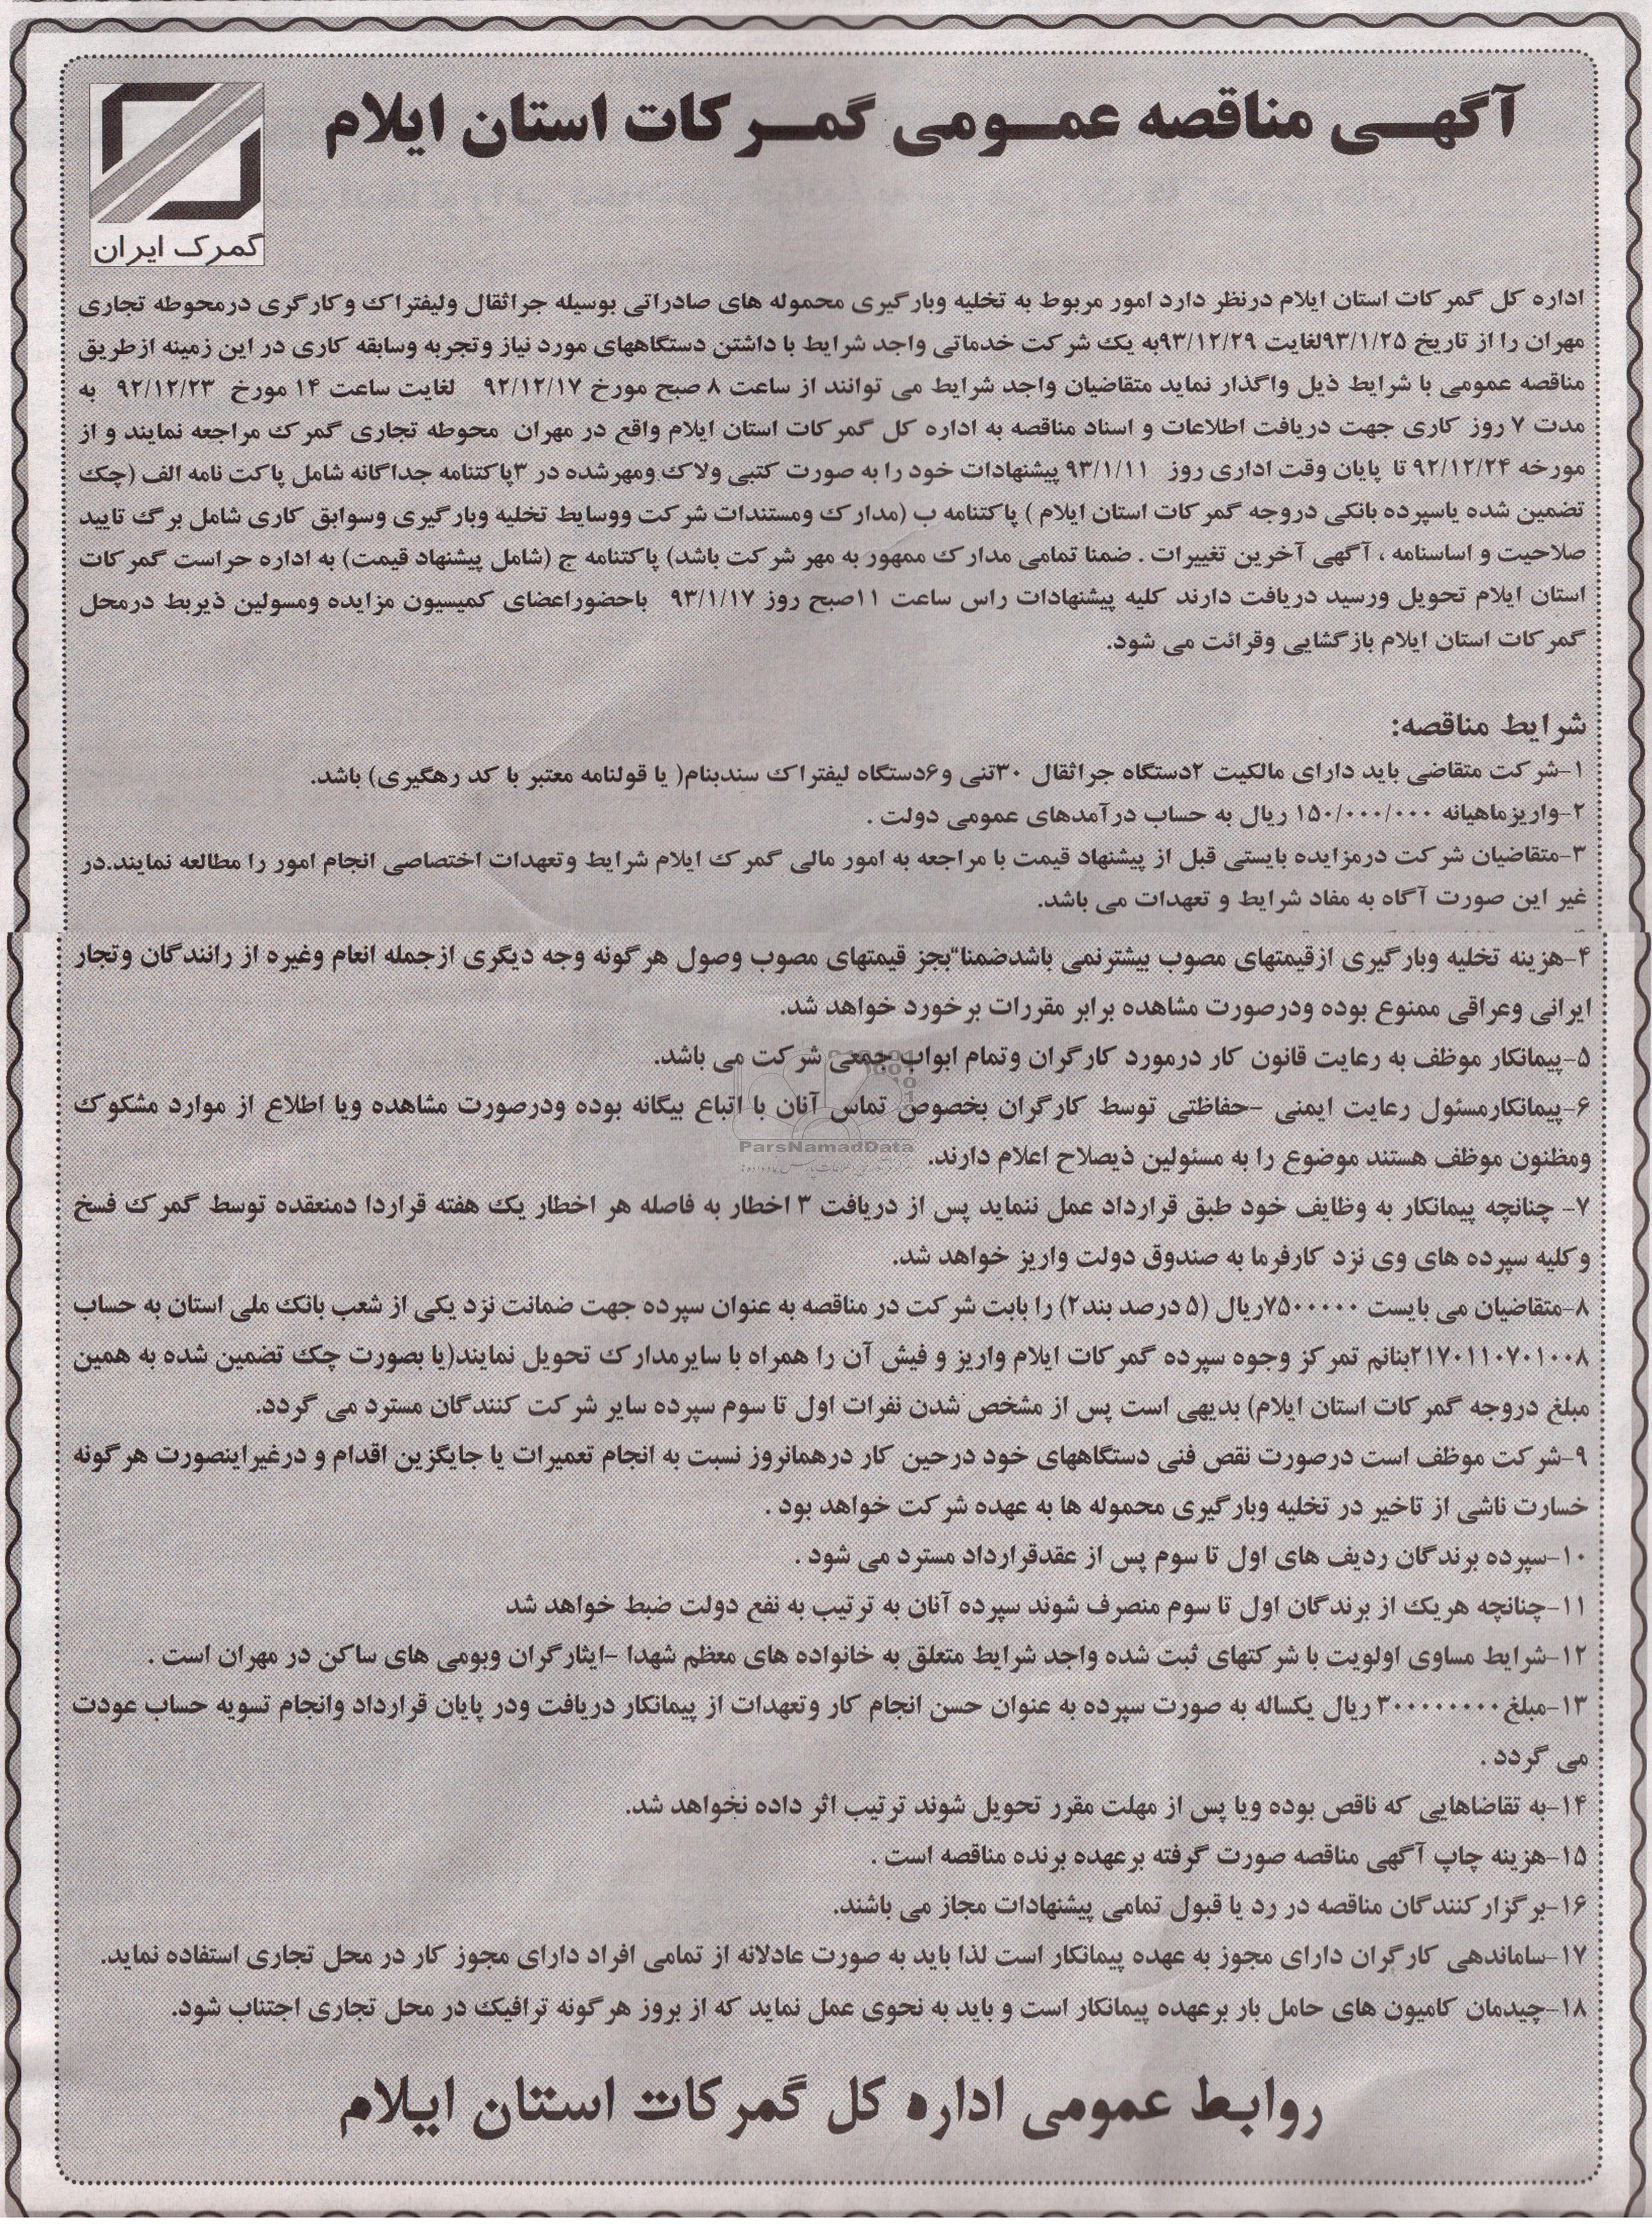 آگهی مناقصه عمومی گمرکات استان ایلام
گمرک ایران
اداره کل گمرکات استان ایلام درنظر دارد امور مربوط به تخلیه وبارگیری محموله های صادراتی بوسیله جراثقال ولیفتراک وکارگری درمحوطه تجاری
مهران را از تاریخ ۹۳/۱/۲۵لغایت ۹۳/۱۲/۲۹به یک شرکت خدماتی واجد شرایط با داشتن دستگاههای مورد نیاز وتجربه وسابقه کاری در این زمینه ازطریق
مناقصه عمومی با شرایط ذیل واگذار نماید متقاضیان واجد شرایط می توانند از ساعت ۸ صبح مورخ ۹۲/۱۲/۱۷ لغایت ساعت ۱۴ مورخ ۹۲/۱۲/۲۳ به
مدت ۷ روز کاری جهت دریافت اطلاعات و اسناد مناقصه به اداره کل گمرکات استان ایلام واقع در مهران محوطه تجاری گمرک مراجعه نمایند و از
مورخه ۹۲/۱۲/۲۴ تا پایان وقت اداری روز ۹۳/۱/۱۱ پیشنهادات خود را به صورت کتبی ولاک ومهرشده در ۳پاکتنامه جداگانه شامل پاکت نامه الف (چک
تضمین شده یاسپرده بانکی دروجه گمرکات استان ایلام ) پاکتنامه ب (مدارک ومستندات شرکت ووسایط تخلیه وبارگیری وسوابق کاری شامل برگ تایید
صلاحیت و اساسنامه ، آگهی آخرین تغییرات . ضمنا تمامی مدارک ممهور به مهر شرکت باشد) پاکتنامه ج (شامل پیشنهاد قیمت) به اداره حراست گمرکات
استان ایلام تحویل ورسید دریافت دارند کلیه پیشنهادات راس ساعت ۱۱صبح روز ۹۳/۱/۱۷ باحضوراعضای کمیسیون مزایده ومسولین ذیربط درمحل
گمرکات استان ایلام بازگشایی وقرائت می شود.
شرایط مناقصه:
۱-شرکت متقاضی باید دارای مالکیت ۲دستگاه جراثقال ۳۰تنی و۶دستگاه لیفتراک سندبنام( یا قولنامه معتبر با کد رهگیری) باشد.
۲-واریزماهیانه ۱۵۰/۰۰۰/۰۰۰ ریال به حساب درآمدهای عمومی دولت .
۳-متقاضیان شرکت درمزایده بایستی قبل از پیشنهاد قیمت با مراجعه به امور مالی گمرک ایلام شرایط وتعهدات اختصاصی انجام امور را مطالعه نمایند.در
غیر این صورت آگاه به مفاد شرایط و تعهدات می باشد.
۴-هزینه تخلیه وبارگیری ازقیمتهای مصوب بیشترنمی باشدضمنا"بجز قیمتهای مصوب وصول هرگونه وجه دیگری ازجمله انعام وغیره از رانندگان وتجار
ایرانی وعراقی ممنوع بوده ودرصورت مشاهده برابر مقررات برخورد خواهد شد.
۵-پیمانکار موظف به رعایت قانون کار درمورد کارگران وتمام ابواب جمعی شرکت می باشد.
۶-پیمانکارمسئول رعایت ایمنی -حفاظتی توسط کارگران بخصوص تماس آنان با اتباع بیگانه بوده ودرصورت مشاهده ویا اطلاع از موارد مشکوک
ParsNamadData
ومظنون موظف هستند موضوع را به مسئولین ذیصلاح اعلام دارند.
۷- چنانچه پیمانکار به وظایف خود طبق قرارداد عمل ننماید پس از دریافت ۳ اخطار به فاصله هر اخطار یک هفته قراردا دمنعقده توسط گمرک فسخ
وکلیه سپرده های وی نزد کارفرما به صندوق دولت واریز خواهد شد.
۸-متقاضیان می بایست ۷۵۰۰۰۰۰ریال (۵ درصد بند۲) را بابت شرکت در مناقصه به عنوان سپرده جهت ضمانت نزد یکی از شعب بانک ملی استان به حساب
۲۱۷۰۱۱۰۷۰۱۰۰۸بنانم تمرکز وجوه سپرده گمرکات ایلام واریز و فیش آن را همراه با سایرمدارک تحویل نمایند(یا بصورت چک تضمین شده به همین
مبلغ دروجه گمرکات استان ایلام) بدیهی است پس از مشخص شدن نفرات اول تا سوم سپرده سایر شرکت کنندگان مسترد می گردد.
۹-شرکت موظف است درصورت نقص فنی دستگاههای خود درحین کار درهمانروز نسبت به انجام تعمیرات یا جایگزین اقدام و درغیراینصورت هرگونه
خسارت ناشی از تاخیر در تخلیه وبارگیری محموله ها به عهده شرکت خواهد بود .
۱۰-سپرده برندگان ردیف های اول تا سوم پس از عقدقرارداد مسترد می شود .
۱۱-چنانچه هریک از برندگان اول تا سوم منصرف شوند سپرده آنان به ترتیب به نفع دولت ضبط خواهد شد
۱۲-شرایط مساوی اولویت با شرکتهای ثبت شده واجد شرایط متعلق به خانواده های معظم شهدا -ایثارگران وبومی های ساکن در مهران است .
۱۳-مبلغ۳۰۰۰۰۰۰۰۰ ریال یکساله به صورت سپرده به عنوان حسن انجام کار وتعهدات از پیمانکار دریافت ودر پایان قرارداد وانجام تسویه حساب عودت
می گردد .
۱۴-به تقاضاهایی که ناقص بوده ویا پس از مهلت مقرر تحویل شوند ترتیب اثر داده نخواهد شد.
۱۵-هزینه چاپ آگهی مناقصه صورت گرفته برعهده برنده مناقصه است .
۱۶-برگزارکنندگان مناقصه در رد یا قبول تمامی پیشنهادات مجاز می باشند.
۱۷-ساماندهی کارگران دارای مجوز به عهده پیمانکار است لذا باید به صورت عادلانه از تمامی افراد دارای مجوز کار در محل تجاری استفاده نماید.
۱۸-چیدمان کامیون های حامل بار برعهده پیمانکار است و باید به نحوی عمل نماید که از بروز هرگونه ترافیک در محل تجاری اجتناب شود.
روابط عمومی اداره کل گمرکات استان ایلام